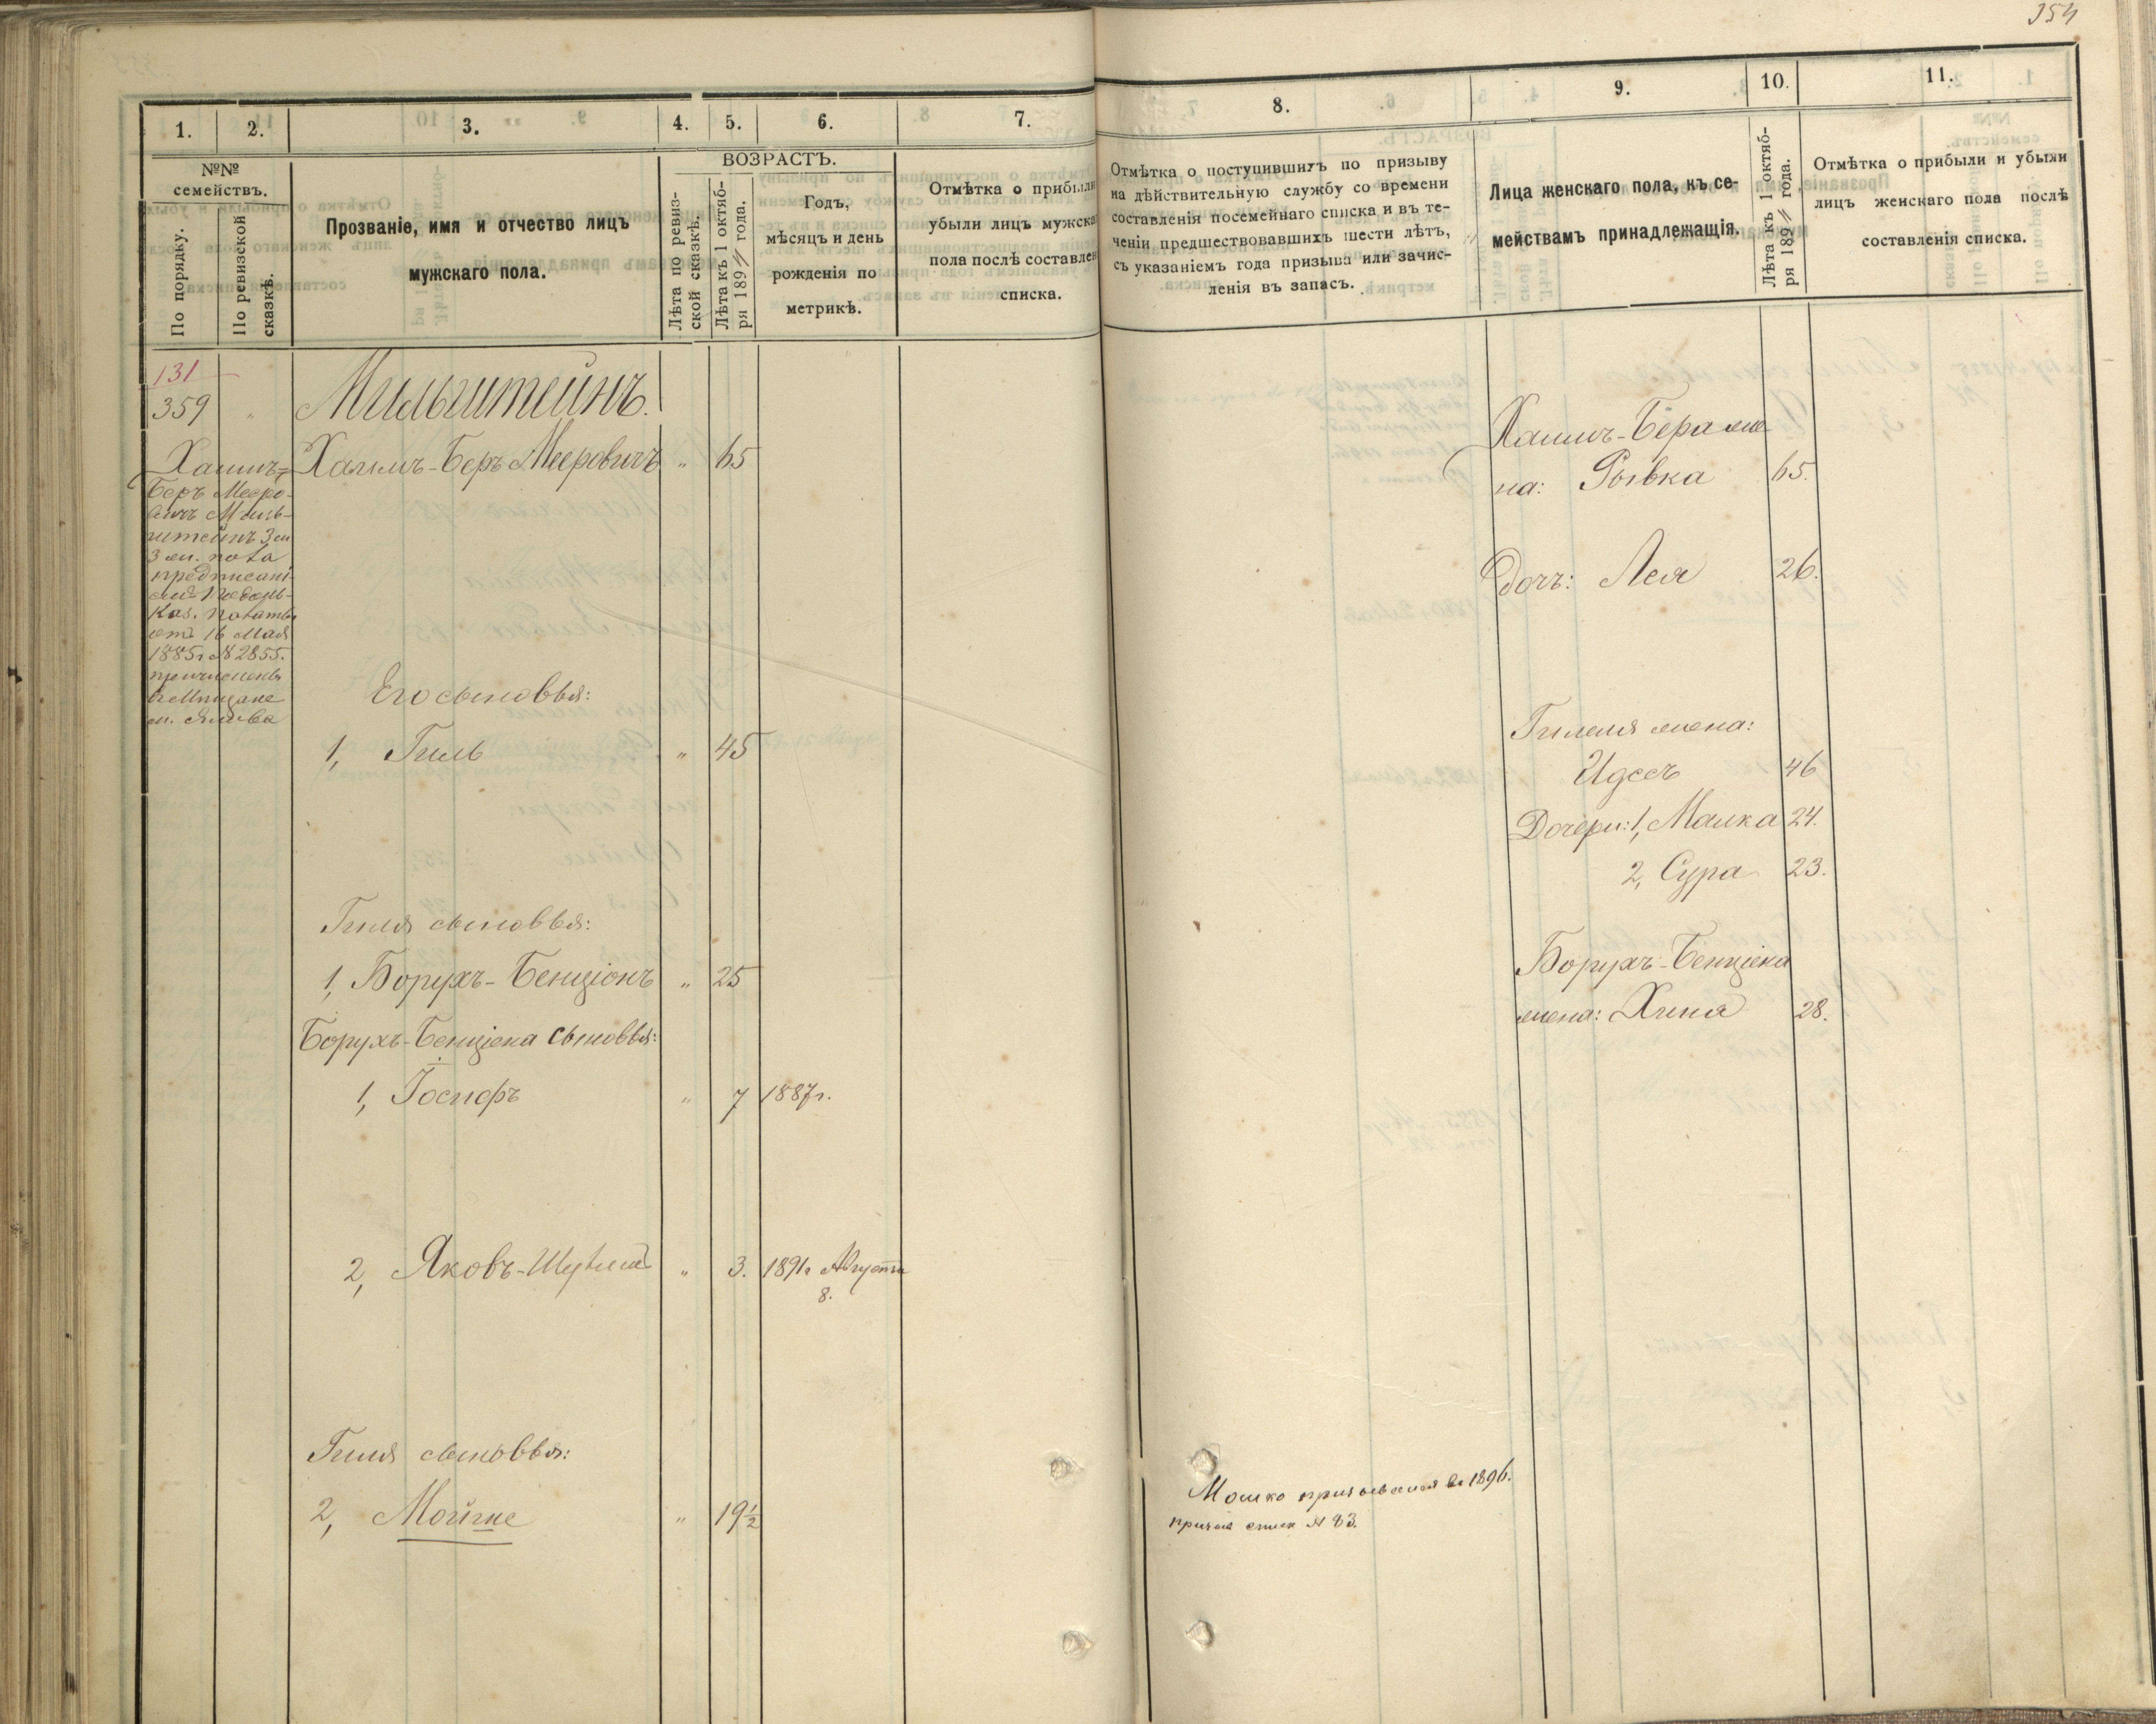 354
1.
2.
3.
4.
5.
6.
7.
№№
семействъ.
По порядку.
По ревизской
сказкѣ.
Прозваніе, имя и отчество лицъ
мужскаго пола.
Лѣта по ревиз-
ской сказкѣ.
ВОЗРАСТЪ.
Лѣта къ 1 октяб-
ря 1894 года.
Годъ,
мѣсяцъ и день
рожденія по
метрикѣ.
Отмѣтка о прибыли
убыли лицъ мужска
пола послѣ составлен
списка.
131
359 "
Мильштейнъ.
Хаимъ-Беръ Мееровичъ " 65
Хаимъ-
Беръ Мееро-
вичъ Миль-
штейнъ
предписані-
Каз. Палаты
отъ 16 Мая
1885 г № 2855.
причисленъ
въ Мѣщане
Его сыновья:
1, Гиль " 45
Гиля сыновья:
1, Борухъ-Бенціонъ " 25
Борухъ-Бенціона сыновья:
1, Іосифъ " 7 1887 г.
2, Яковъ-Шулимъ " 3. 1891 г Августа
8.
Гиля сыновья:
2, Мойше " 19 1/2
8.
9.
10.
11.
Отмѣтка о поступившихъ по призыву
на дѣйствительную службу со времени
составленія посемейнаго списка и въ те-
ченіи предшествовавшихъ шести лѣтъ,
съ указаніемъ года призыва или зачис-
ленія въ запасъ.
Лица женскаго пола, къ се-
мействамъ принадлежащія.
Лѣта къ 1 октяб-
ря 1894 года.
Отмѣтка о прибыли и убыли
лицъ женскаго пола послѣ
составленія списка.
Хаимъ-Бера же
на: Рывка 65.
дочь: Лея 26.
Гилеля жена:
Идесъ 46
Дочери: 1, Малка 24.
2, Сура 23.
Борухъ-Бенціона
жена: Хина 28.
Мошко призывался въ 1896.
призыв списк № 83.